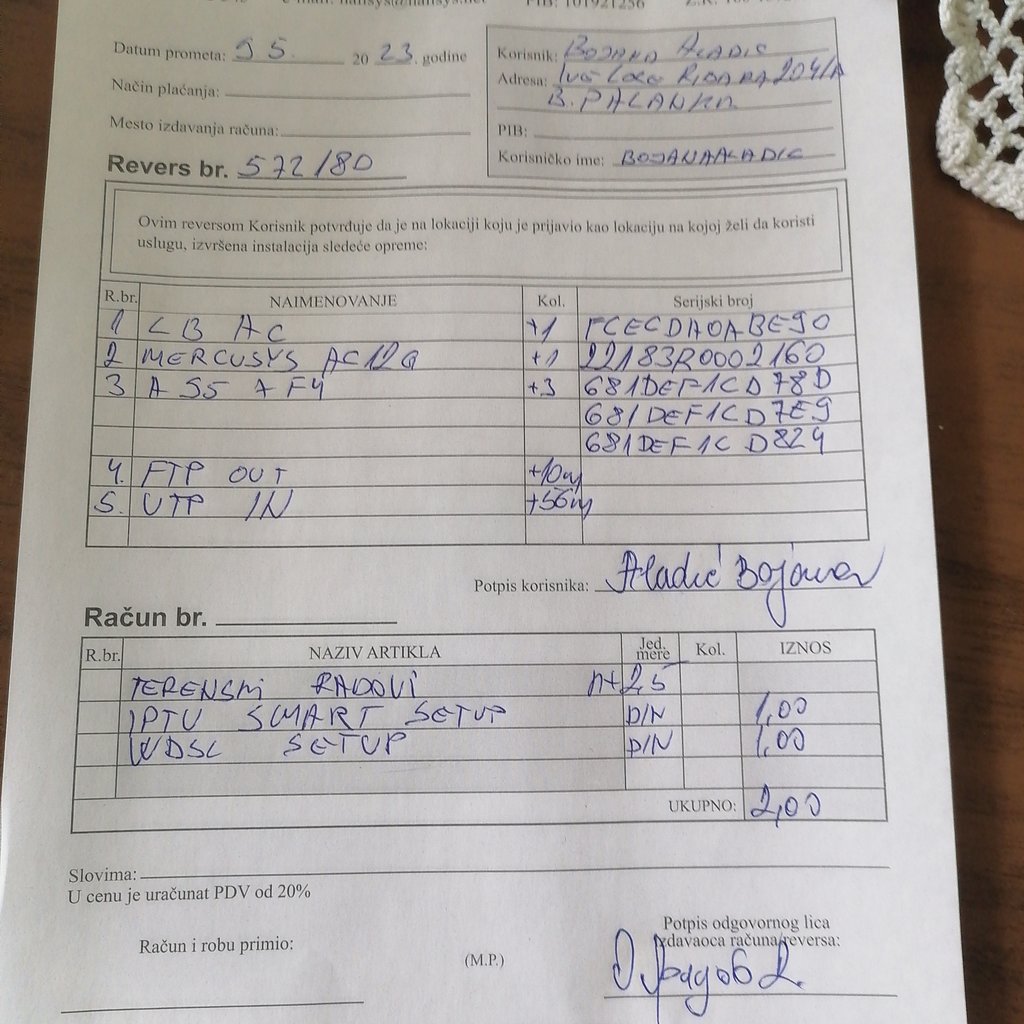 Datum prometa: 9 5. 20 23. godine
Način plaćanja:
Mesto izdavanja računa:
Korisnik: BOJANA ALADIC
Adresa: IVE LOLE RIBARA 204/A
B. PALANKA
PIB:
Korisničko ime: BOJANAALADIC
Revers br. 572/80
Ovim reversom Korisnik potvrđuje da je na lokaciji koju je prijavio kao lokaciju na kojoj želi da koristi
uslugu, izvršena instalacija sledeće opreme:
R.br. NAIMENOVANJE Kol. Serijski broj
1 LB AC +1 FCECDA0ABE90
2 MERCUSYS AC12G +1 22183R0002160
3 A 95 X F4 +3 681DEF1CD78D
681DEF1CD7E9
681DEF1CD824
4. FTP OUT +10m
5. UTP IN +56m
Potpis korisnika: Aladić Bojana
Račun br.
R.br. NAZIV ARTIKLA Jed. mere Kol. IZNOS
TERENSKI RADOVI n+2,5
IPTV SMART SETUP DIN 1,00
WDSL SETUP DIN 1,00
UKUPNO: 2,00
Slovima:
U cenu je uračunat PDV od 20%
Račun i robu primio:
(M.P.)
Potpis odgovornog lica
izdavaoca računa/reversa: